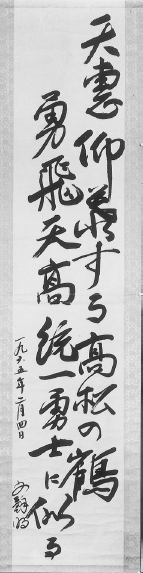 天恵仰慕する高松の鶴
勇飛天高統一勇士に似る
一九六五年二月四日